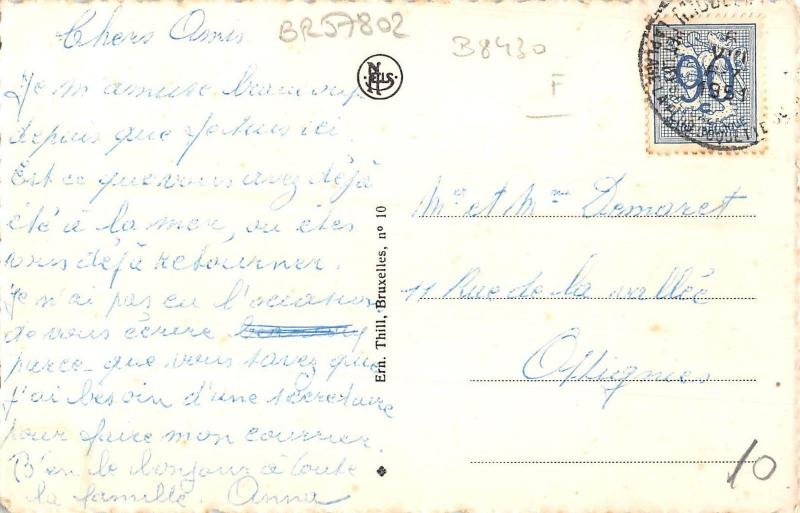 Chers Amis
Je m'amuse beaucoup
depuis que je suis ici.
Est ce que vous avez déjà
été à la mer, ou êtes
vous déjà retourner.
Je n'ai pas eu l'occasion
de vous écrire
parce-que vous savez que
j'ai besoin d'une secretaire
pour faire mon courrier.
B'en le bonjour à toute
la famille. Anna
BR57802
B8430
F
NELS
Ern. Thill, Bruxelles, nº 10
90
c
Mr et Mme Demaret
11 Rue de la vallée
Ottignies
10